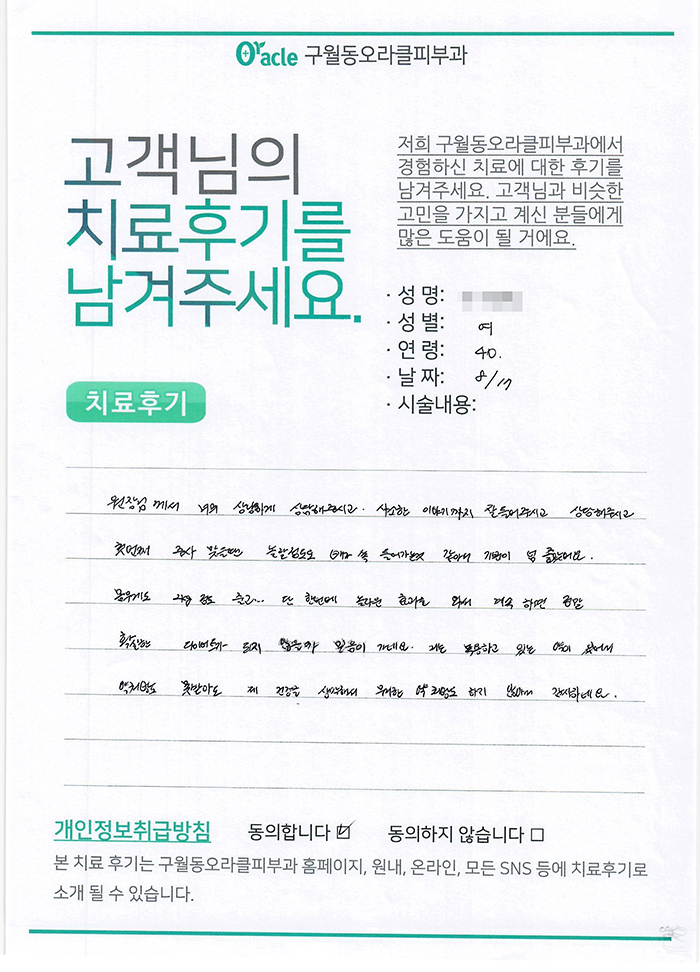 Oracle 구월동오라클피부과
고객님의
치료후기를
남겨주세요.
저희 구월동오라클피부과에서
경험하신 치료에 대한 후기를
남겨주세요. 고객님과 비슷한
고민을 가지고 계신 분들에게
많은 도움이 될 거에요.
· 성 명:
· 성 별: 여
· 연 령: 40.
· 날 짜: 8/17
· 시술내용:
치료후기
원장님께서 너무 상냥하게 상담해주시고. 사소한 이야기까지 잘들어주시고 상담해주시고
첫번째 주사 맞을때 놀랄정도로 쏙 들어가는것 같아서 기분이 넘 좋았어요.
몸무게도 정도 줄고... 단 한번에 놀라운 효과를 계속 하면 정말
확실한 다이어트가 되지 않을까 믿음이 가네요. 저는 복용하고 있는 약이 있어서
약처방도 못받아도 제 건강을 생각해서 무리한 약처방도 하지 않아서 감사하네요.
개인정보취급방침 동의합니다 ☑ 동의하지 않습니다 □
본 치료 후기는 구월동오라클피부과 홈페이지, 원내, 온라인, 모든 SNS 등에 치료후기로
소개 될 수 있습니다.